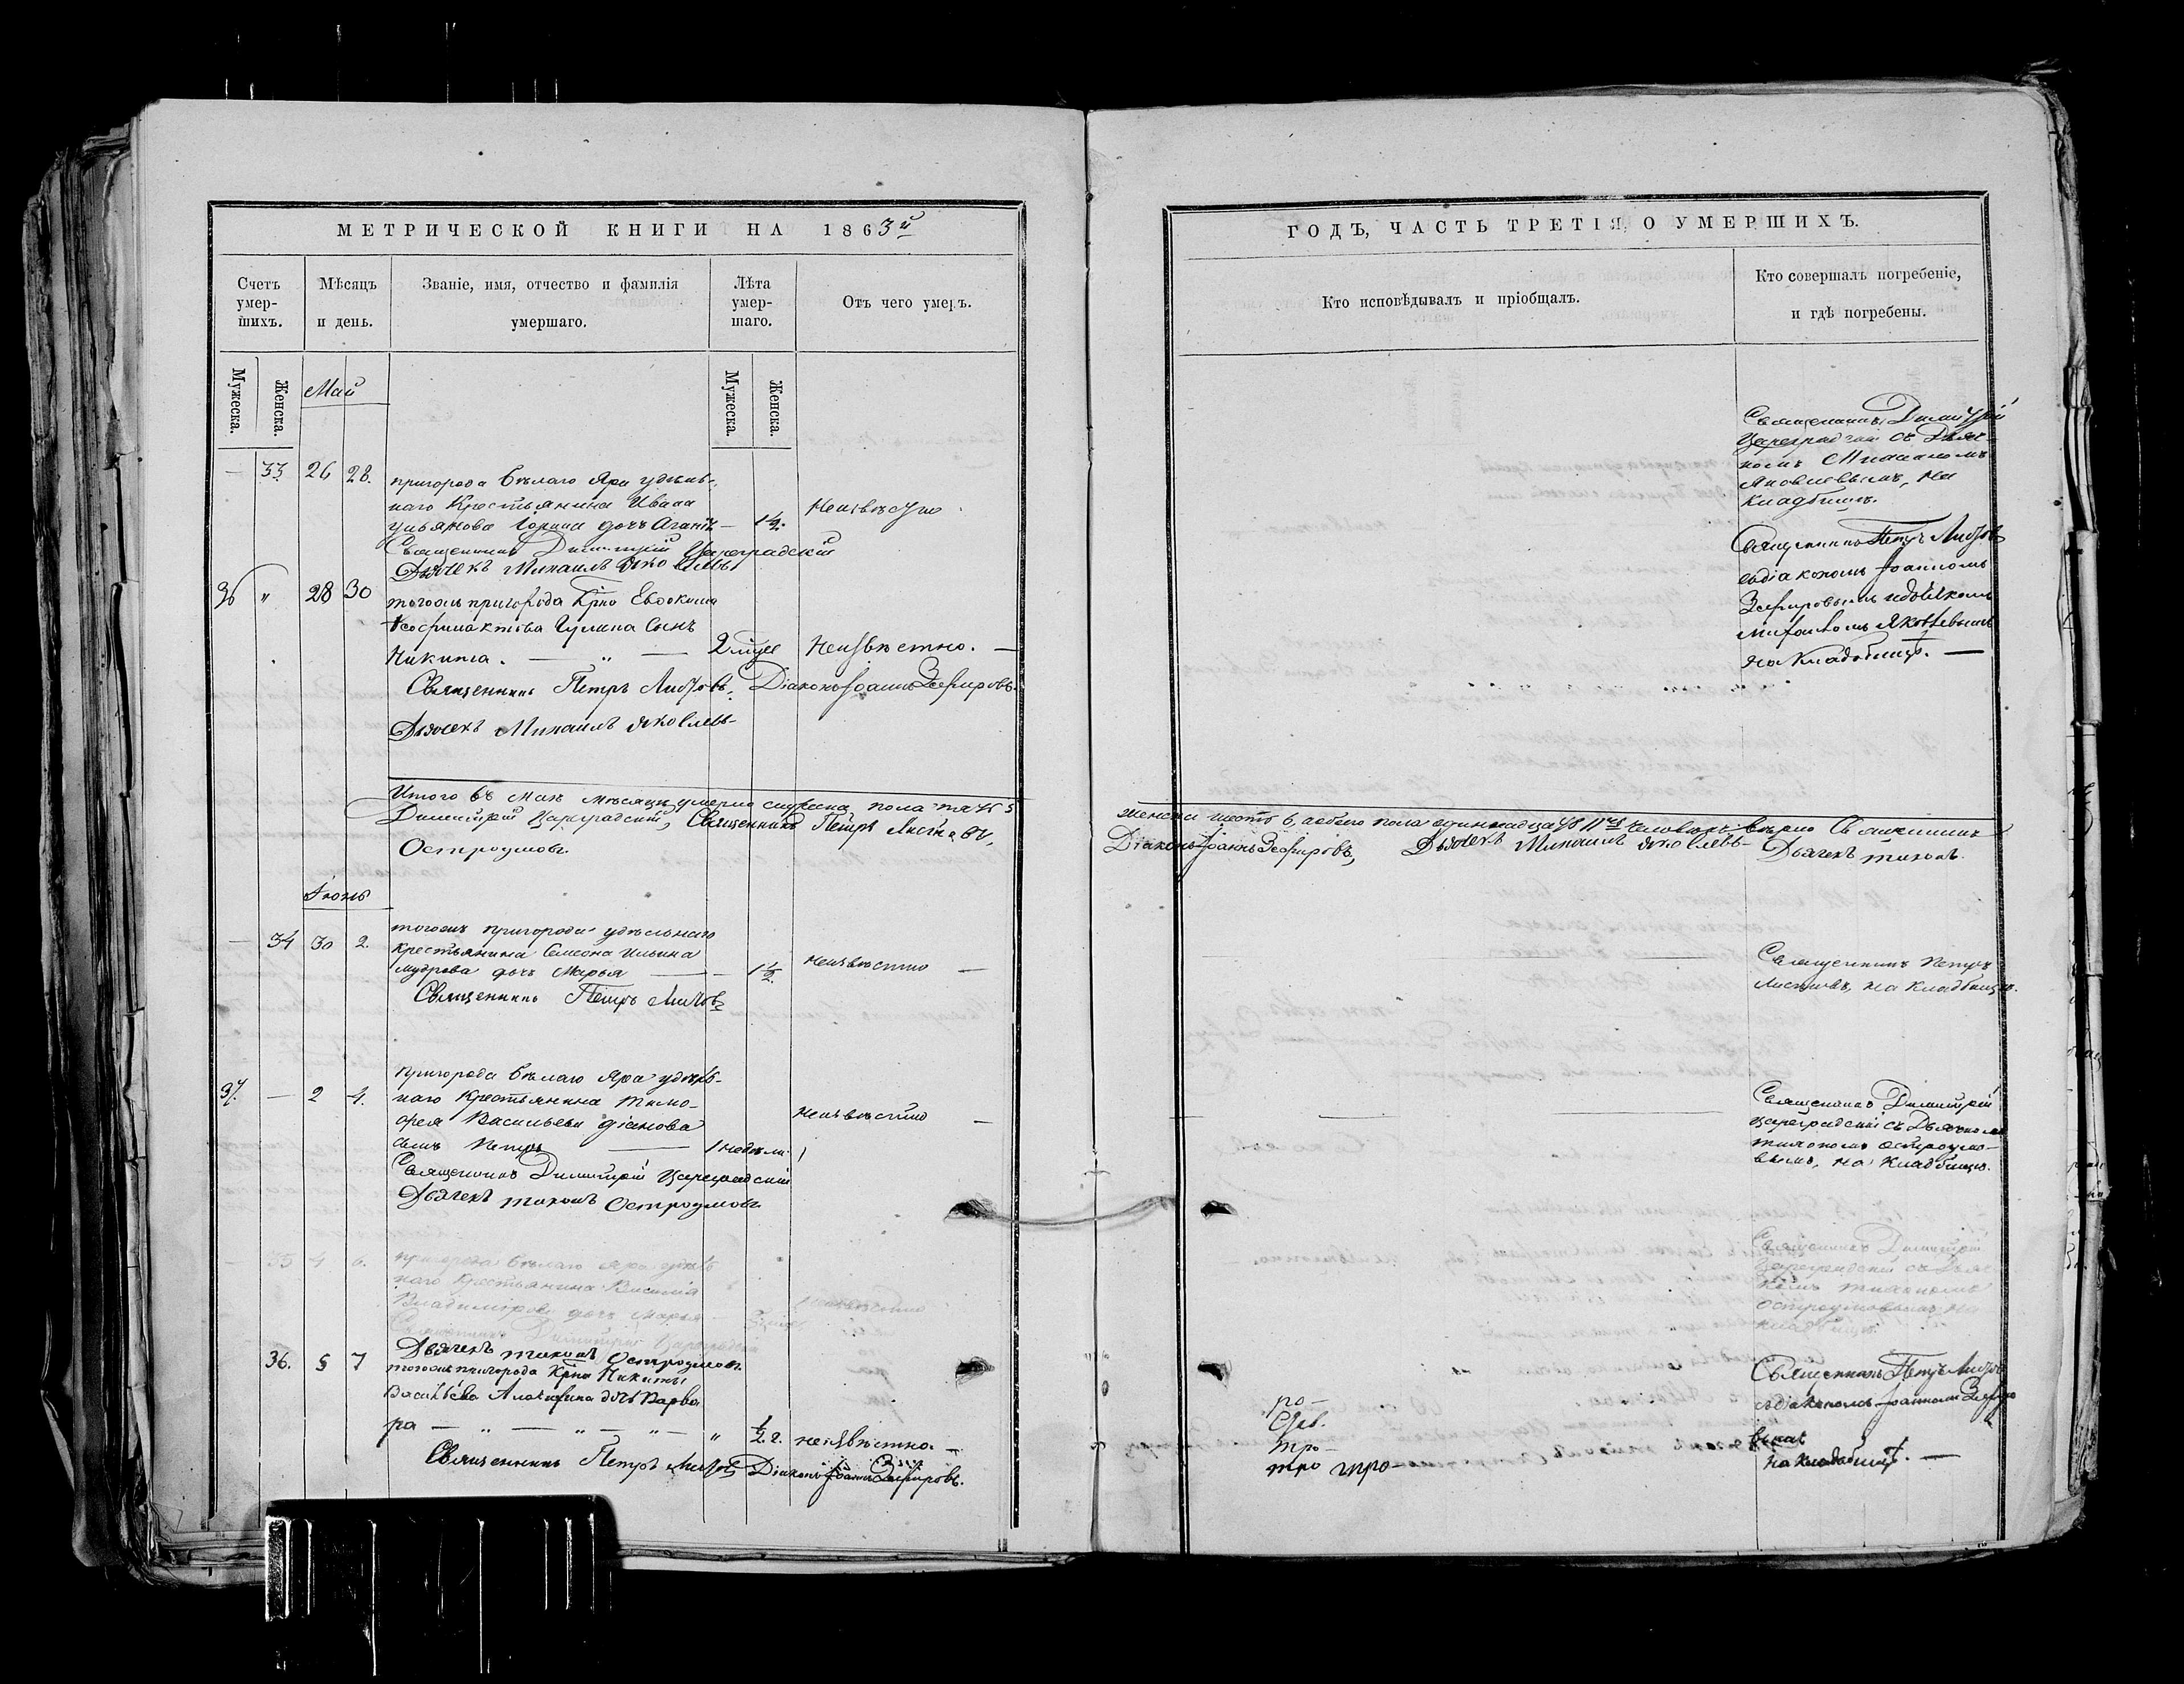 МЕТРИЧЕСКОЙ КНИГИ НА 1863й
Счетъ умер-шихъ.
Мѣсяцъ и день.
Званіе, имя, отчество и фамилія умершаго.
Лѣта умер-шаго.
Отъ чего умеръ.
Мужеска.
Женска.
Мужеска.
Женска.
Май
— 33 26 28. пригорода Бѣлаго Яра удѣль-
наго Крестьянина Ивана
Ульянова дочь — 1½. Неизвѣстно
Священникъ Димитрій Цареградскій
Дьячекъ Михаилъ Яковлевъ
36 " 28 30 тогожъ пригорода Крно Евдокима
Ѳеофилактова Гулина Сынъ
Никита. — " — 2 Неизвѣстно. —
Священникъ Петръ Листовъ, Діаконъ Іоаннъ Зефировъ.
Дьячекъ Михаилъ Яковлевъ
Итого въ Маѣ мѣсяцѣ умерло мужеска пола пять 5
Димитрій Цареградскій, Священникъ Петръ Листовъ,
Остроумовъ.
Іюнь
— 34 30 2. тогожъ пригорода удѣльнаго
Крестьянина Семена Ильина
Мудрова дочь Марья — — 1½ неизвѣстно —
Священникъ Петръ Листовъ
37. — 2 4. Пригорода Бѣлаго Яра удѣль-
наго Крестьянина Тимо-
фея Васильева
сынъ Петръ — 1 недѣли неизвѣстно —
Священникъ Димитрій Цареградскій
Дьячекъ Тихонъ Остроумовъ
— 35 4 6. пригорода Бѣлаго Яра удѣль
наго Крестьянина Василія
Владимірова дочь Марья неизвѣстно
Священникъ Димитрій Цареградскій
Дьячекъ Тихонъ Остроумовъ
36. 5 7 тогожъ пригорода Крно Никиты
Васильева дочь Варва
ра — " — " — " — " ½ г. неизвѣстно. —
Священникъ Петръ Листовъ Діаконъ Іоаннъ Зефировъ.
ГОДЪ, ЧАСТЬ ТРЕТІЯ, О УМЕРШИХЪ.
Кто исповѣдывалъ и пріобщалъ.
Кто совершалъ погребеніе,
и гдѣ погребены.
Священникъ Димитрій
Цареградскій съ Дьяч-
комъ Михаиломъ
Яковлевымъ, на
Кладбищѣ.
Священникъ Петръ Листовъ
съ діакономъ Іоанномъ
Зефировымъ и дьячкомъ
Михаиломъ Яковлевымъ
на Кладбищѣ. —
женска шесть 6, а обоего пола одиннадцать 11 человѣкъ. вѣрно Священникъ
Діаконъ Іоаннъ Зефировъ, Дьячекъ Михаилъ Яковлевъ Дьячекъ Тихонъ.
Священникъ Петръ
Листовъ, на Кладбищѣ.
Священникъ Димитрій
Цареградскій съ Дьячкомъ
Тихономъ Остроумо-
вымъ, на Кладбищѣ.
Священникъ Димитрій
Цареградскій съ Дьяч
комъ Тихономъ
Остроумовымъ, на
кладбищѣ.
Священникъ Петръ Листовъ
съ діакономъ Іоанномъ Зефиро
вымъ
на кладбищѣ. —
ро-
тро-
тро тро-